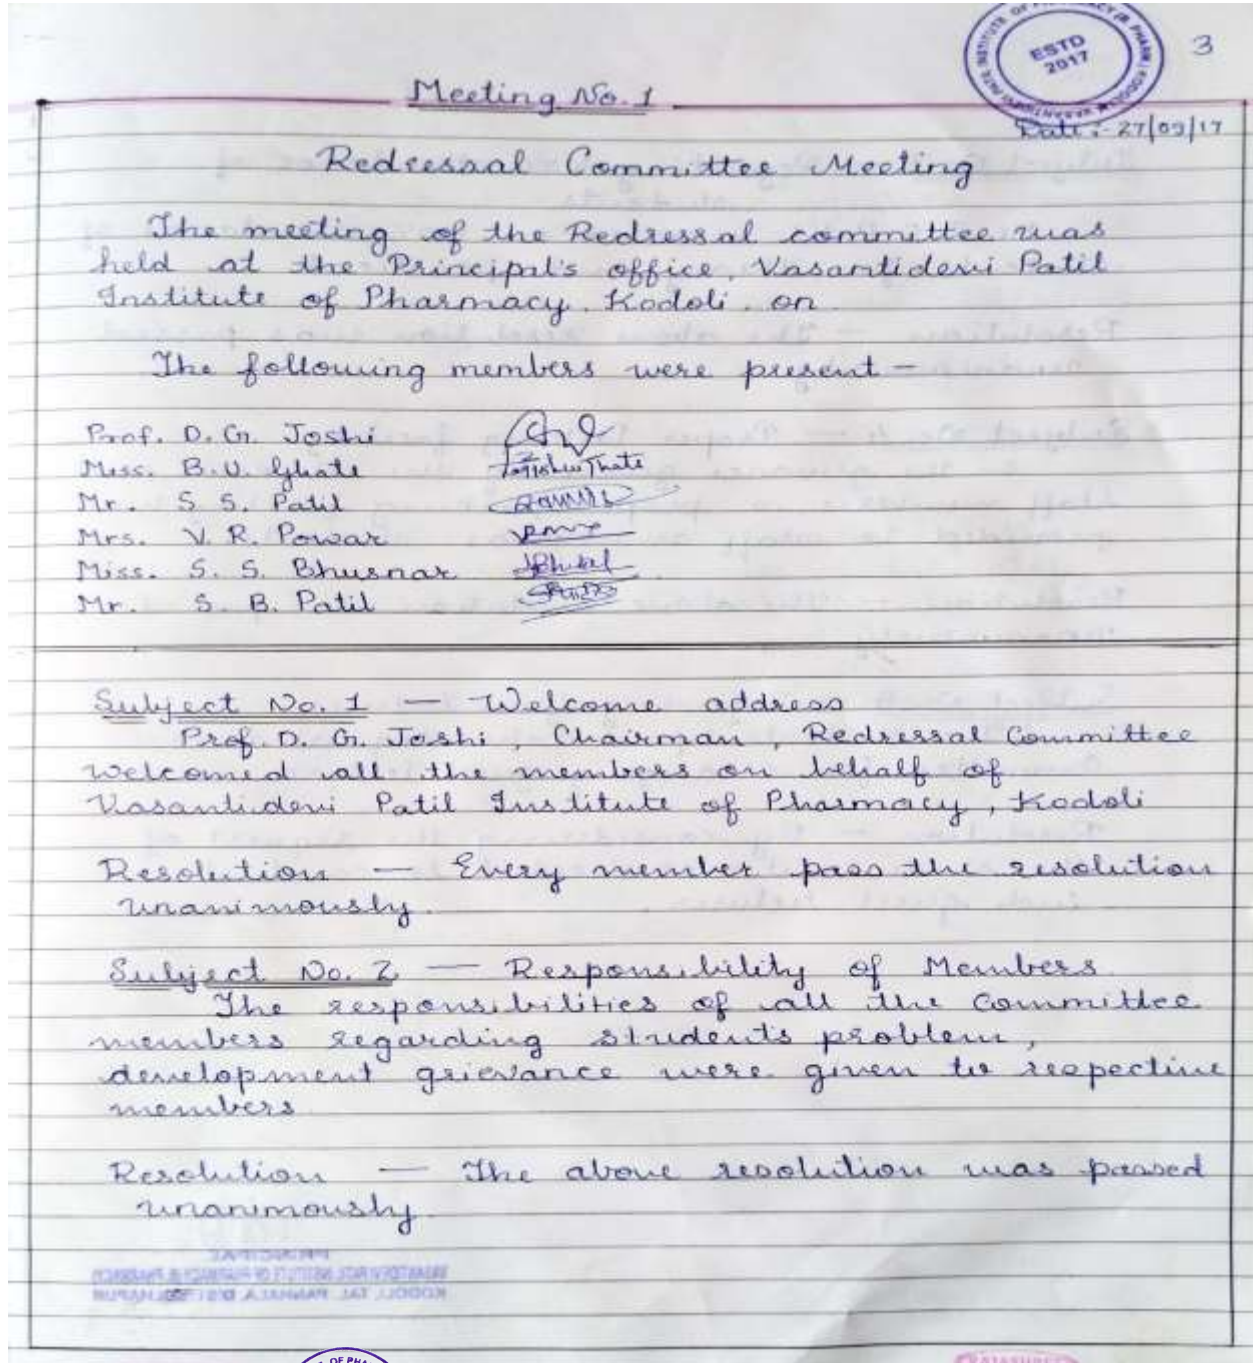 3
ESTD
2017
Meeting No. 1
Date:- 27/09/17
Redressal Committee Meeting
The meeting of the Redressal committee was
held at the Principal's office, Vasantidevi Patil
Institute of Pharmacy, Kodoli. on
The following members were present -
Prof. D. G. Joshi
Miss. B. U. Ghate
Mr. S. S. Patil
Mrs. V. R. Powar
Miss. S. S. Bhusnar
Mr. S. B. Patil
Subject No. 1 — Welcome address
Prof. D. G. Joshi, Chairman, Redressal Committee
welcomed all the members on behalf of
Vasantidevi Patil Institute of Pharmacy, Kodoli
Resolution — Every member pass the resolution
unanimously.
Subject No. 2 — Responsibility of Members
The responsibilities of all the Committee
members regarding student's problem,
development grievance were given to respective
members
Resolution — The above resolution was passed
unanimously